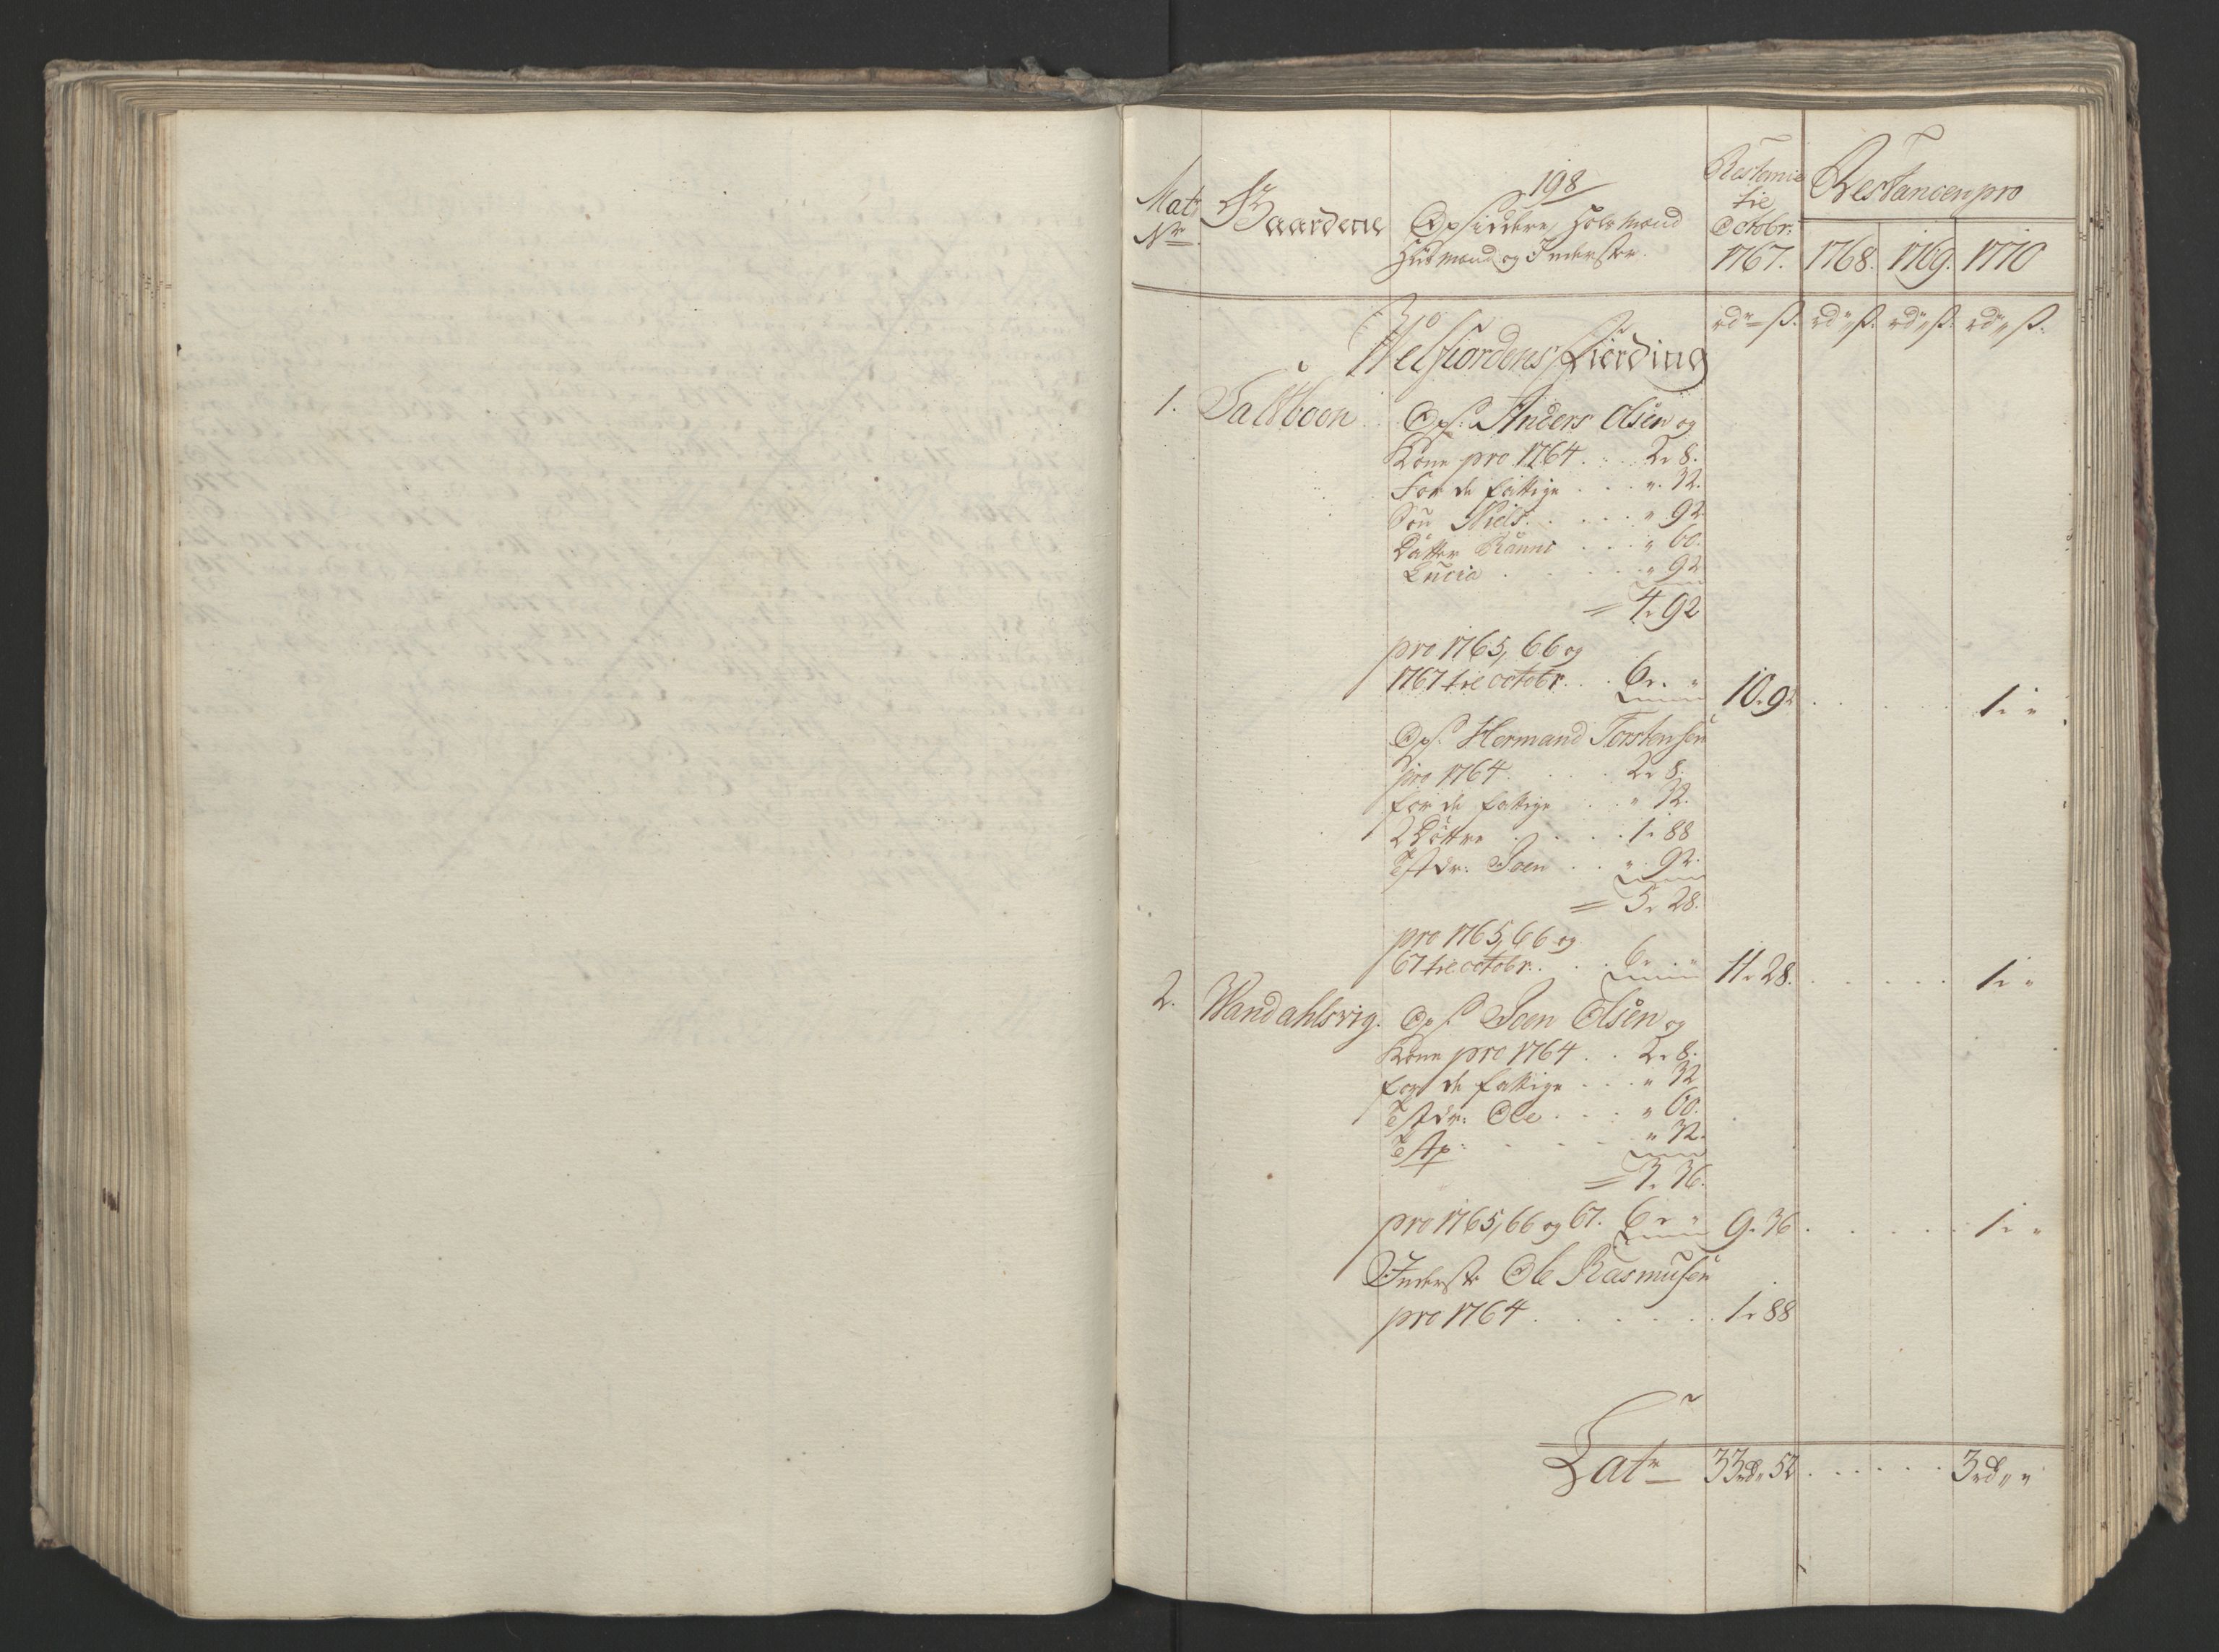 198
Mat: Nr
Gaardene
Opsiddere, Holsmænd
Huusmænd og Inderster.
Restance
til
Octobr:
1767.
Restancen pro
1768. 1769. 1770
rd ß. rd ß. rd ß. rd ß.
Welfiordens Fierding
1. Saltboen Ops: Anders Olsen og
Kone pro 1764 . . . 2 " 8.
For de fattige . . . " 32.
Søn Niels . . . . " 92
Datter . . . " 60.
Lucia . . . . . " 92
= 4 " 92
pro 1765, 66 og
1767 til octobr. . . 6 " " 10 " 92 . . . . . 1 " "
Ops: Hermand Torstensen
pro 1764 . . . . 2 " 8.
for de fattige . . . " 32.
2 Døttre . . . . . 1 " 88
Joen . . " 92.
= 5 " 28.
pro 1765, 66 og
67 til octobr: . . . 6 " " 11 " 28. . . . . . 1 " "
2. Wandahlsvig. Ops: Joen Olsen og
Kone pro 1764 . . 2 " 8.
for de fattige . . . " 32
Ole . . . . " 60.
. . . . " 32.
= 3 " 36.
pro 1765, 66 og 67. 6 " " 9 " 36 . . . . . 1 " "
Inderste Ole Rasmusen
pro 1764 . . . . . . . 1 " 88
Latr 33 rd " 52 . . . . . . 3 rd " "